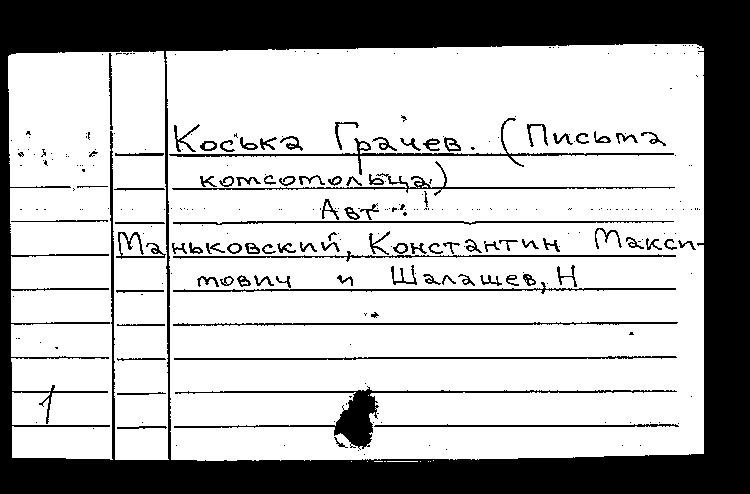 Коська Грачев. (Письма
комсомольца)
Авт.:
Маньковский, Константин Макси-
мович и Шалашев, Н
1